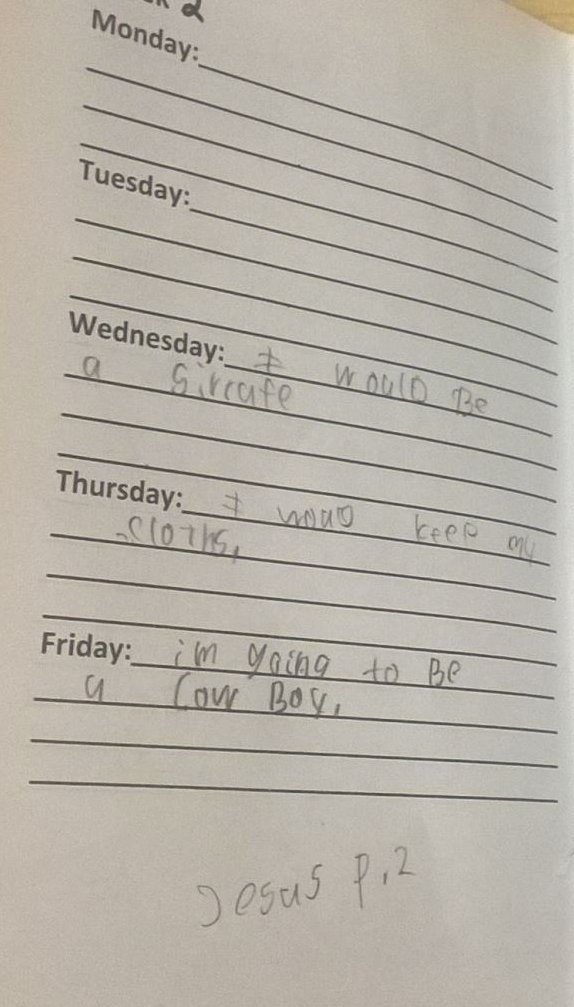 2
Monday:
Tuesday:
Wednesday: I would Be
a Sircufe
Thursday: I woud keep my
cloths,
Friday: i'm going to Be
a Cow Boy,
Jesus p.2